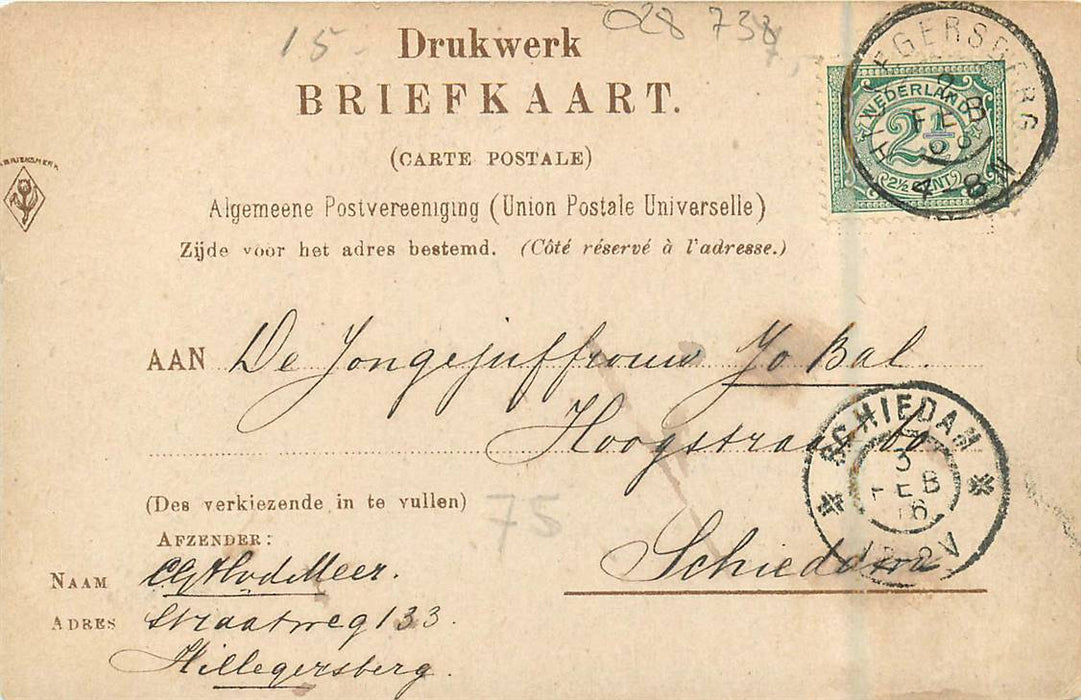 15-
028 738
7,-
Drukwerk
BRIEFKAART.
(CARTE POSTALE)
Algemeene Postvereeniging (Union Postale Universelle)
Zijde voor het adres bestemd. (Côté réservé à l'adresse.)
NEDERLAND
2½
2½ CENT
FEB
4-8N
AAN De Jongejuffrouw Jo Bal.
Hoogstraat
SCHIEDAM
3
FEB
2V
Schiedam
75
(Des verkiezende in te vullen)
AFZENDER:
NAAM v d Meer.
ADRES Straatweg 133.
Hillegersberg.